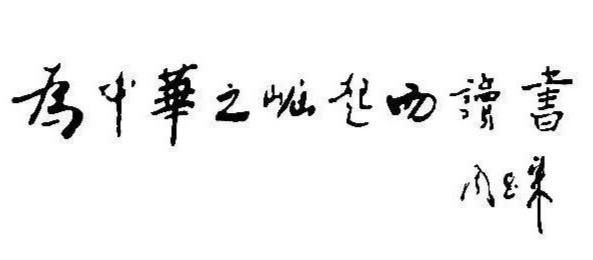 為中華之崛起而讀書
周恩来